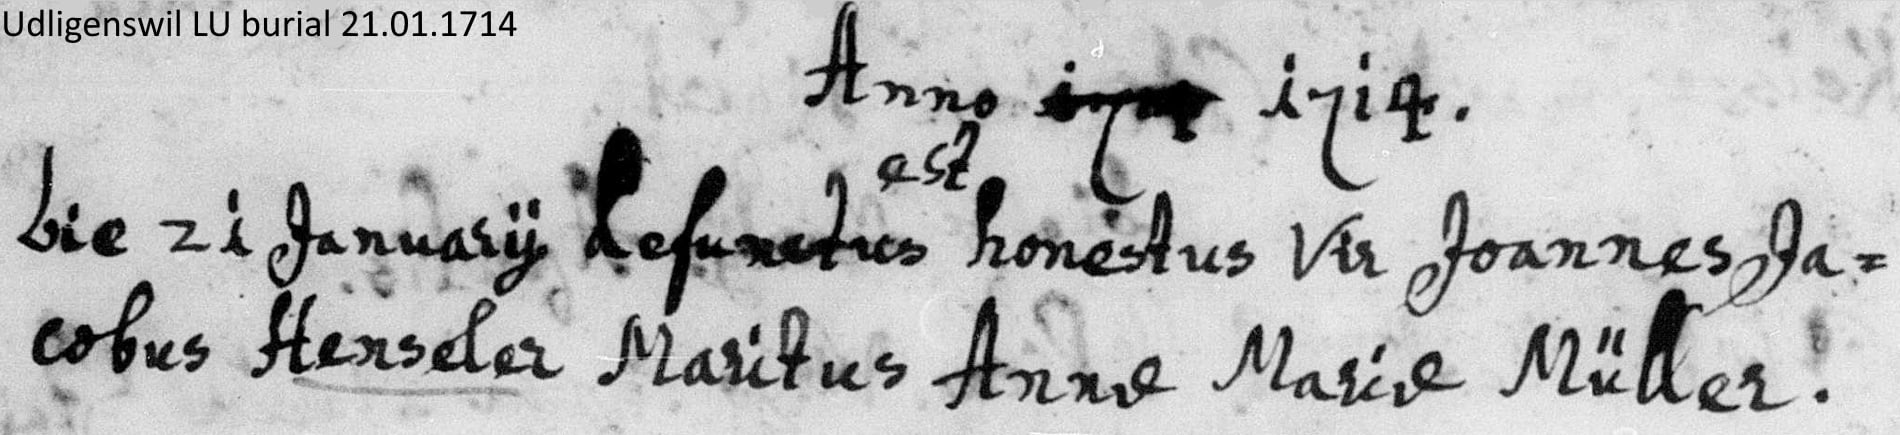 Udligenswil LU burial 21.01.1714
Anno 1714.
est
Die 21 Januarij defunctus honestus Vir Joannes Ja=
cobus Henseler Maritus Annæ Mariæ Müller.